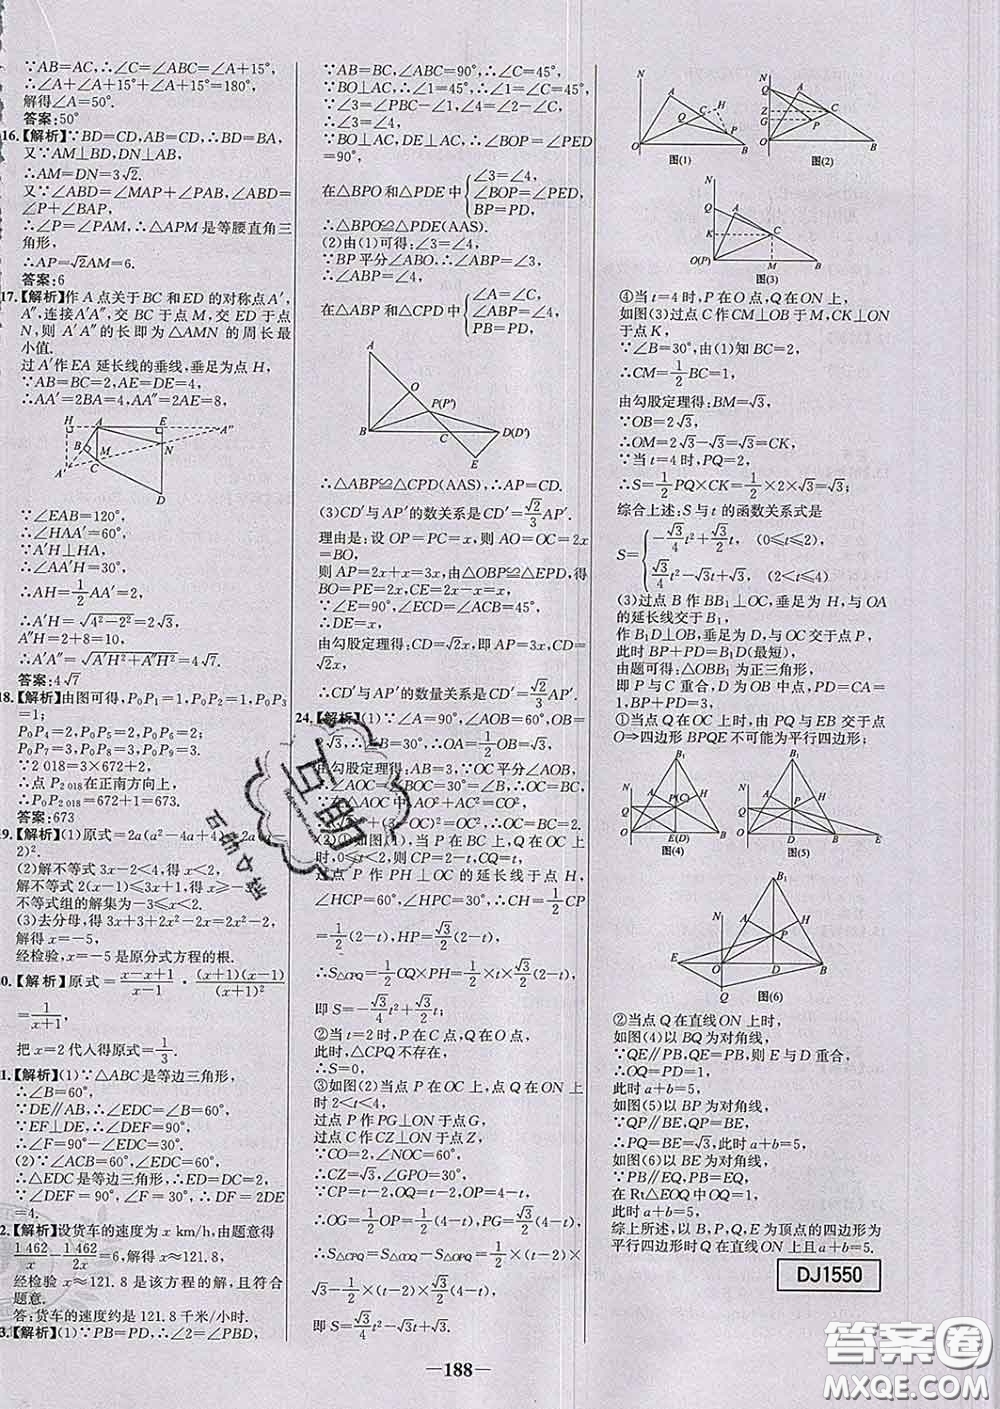 ∵AB=AC,∴∠C=∠ABC=∠A+15°,
∴∠A+∠A+15°+∠A+15°=180°,
解得∠A=50°.
答案:50°
16.【解析】∵BD=CD,AB=CD,∴BD=BA,
又∵AM⊥BD,DN⊥AB,
∴AM=DN=3√2.
又∵∠ABD=∠MAP+∠PAB,∠ABD=
∠P+∠BAP,
∴∠P=∠PAM,∴△APM是等腰直角三
角形,
∴AP=√2AM=6.
答案:6
17.【解析】作A点关于BC和ED的对称点A′,
A″,连接A′A″,交BC于点M,交ED于点
N,则A′A″的长即为△AMN的周长最
小值.
过A′作EA延长线的垂线,垂足为点H,
∵AB=BC=2,AE=DE=4,
∴AA′=2BA=4,AA″=2AE=8,
H A E A″
B M N
A′ C
D
∵∠EAB=120°,
∴∠HAA′=60°,
∵A′H⊥HA,
∴∠AA′H=30°,
∴AH=1/2AA′=2,
∴A′H=√(4²-2²)=2√3,
A″H=2+8=10,
∴A′A″=√(A′H²+A″H²)=4√7.
答案:4√7
18.【解析】由图可得,P₀P₁=1,P₀P₂=1,P₀P₃
=1;
P₀P₄=2,P₀P₅=2,P₀P₆=2;
P₀P₇=3,P₀P₈=3,P₀P₉=3;
∵2 018=3×672+2,
∴点P₂ ₀₁₈在正南方向上,
∴P₀P₂ ₀₁₈=672+1=673.
答案:673
19.【解析】(1)原式=2a(a²-4a+4)=2a(a-
2)².
(2)解不等式3x-2<4,得x<2,
解不等式2(x-1)≤3x+1,得x≥-3,
不等式组的解集为-3≤x<2.
(3)去分母,得3x+3+2x²-2x=2x²-2,
解得x=-5,
经检验,x=-5是原分式方程的根.
20.【解析】原式=(x-x+1)/(x-1)·(x+1)(x-1)/(x+1)²
=1/(x+1),
把x=2代人得原式=1/3.
21.【解析】(1)∵△ABC是等边三角形,
∴∠B=60°,
∵DE∥AB,∴∠EDC=∠B=60°,
∵EF⊥DE,∴∠DEF=90°,
∴∠F=90°-∠EDC=30°.
(2)∵∠ACB=60°,∠EDC=60°,
∴△EDC是等边三角形,∴ED=DC=2,
∵∠DEF=90°,∠F=30°,∴DF=2DE
=4.
22.【解析】设货车的速度为x km/h,由题意得
1 462/x-1 462/2x=6,解得x≈121.8,
经检验x≈121.8是该方程的解,且符合
题意.
答:货车的速度约是121.8千米/小时.
23.【解析】(1)∵PB=PD,∴∠2=∠PBD,
∵AB=BC,∠ABC=90°,∴∠C=45°,
∵BO⊥AC,∴∠1=45°,∴∠1=∠C=45°,
∵∠3=∠PBC-∠1,∠4=∠2-∠C,
∴∠3=∠4,
∵BO⊥AC,DE⊥AC,∴∠BOP=∠PED
=90°,
在△BPO和△PDE中{∠3=∠4,
∠BOP=∠PED,
BP=PD,
∴△BPO≌△PDE(AAS).
(2)由(1)可得:∠3=∠4,
∵BP平分∠ABO.∴∠ABP=∠3,
∴∠ABP=∠4,
在△ABP和△CPD中{∠A=∠C,
∠ABP=∠4,
PB=PD,
A
O
P(P′)
B C D(D′)
E
∴△ABP≌△CPD(AAS),∴AP=CD.
(3)CD′与AP′的数关系是CD′=√2/3AP′.
理由是:设OP=PC=x,则AO=OC=2x
=BO,
则AP=2x+x=3x,由△OBP≌△EPD,得
BO=PE=2x,CE=2x-x=x,
∵∠E=90°,∠ECD=∠ACB=45°,
∴DE=x,
由勾股定理得:CD=√2x,即AP=3x,CD
=√2x,
∴CD′与AP′的数量关系是CD′=√2/3AP′.
24.【解析】(1)∵∠A=90°,∠AOB=60°,OB=
2√3,∴∠B=30°,∴OA=1/2OB=√3,
由勾股定理得:AB=3,∵OC平分∠AOB,
∴∠AOC=∠BOC=30°=∠B,
(2)①如图(1),当P在BC上,Q在OC上
时,0≤t<2,则CP=2-t,CQ=t,
过点P作PH⊥OC的延长线于点H,
∠HCP=60°,∠HPC=30°,∴CH=1/2CP
=1/2(2-t),HP=√3/2(2-t),
∴S△CPQ=1/2CQ×PH=1/2×t×√3/2(2-t),
即S=-√3/4t²+√3/2t;
②当t=2时,P在C点,Q在O点,
此时,△CPQ不存在,
∴S=0,
③如图(2)当点P在OC上,点Q在ON上
时2<t<4,
过点P作PG⊥ON于点G,
过点C作CZ⊥ON于点Z,
∵CO=2,∠NOC=60°,
∴CZ=√3,∠GPO=30°.
∵CP=t-2,OQ=t-2,OP=4-t,
∴OG=1/2OP=1/2(4-t),PG=√3/2(4-t),
∴S△CPQ=S△COQ-S△OPQ
=1/2(t-2)×√3-1/2×(t-2)×√3/2(4-t),
即S=√3/4t²-√3t+√3.
N A C H
Q P
O B
图(1)
N Q A
Z C
G P
O B
图(2)
N
Q A
K C
O(P) M B
图(3)
④当t=4时,P在O点,Q在ON上,
如图(3)过点C作CM⊥OB于M,CK⊥ON
于点K,
∵∠B=30°,由(1)知BC=2,
∴CM=1/2BC=1,
由勾股定理得:BM=√3,
∵OB=2√3,
∴OM=2√3-√3=√3=CK,
∵当t=4时,PQ=2,
∴S=1/2PQ×CK=1/2×2×√3=√3;
综合上述:S与t的函数关系式是
S={-√3/4t²+√3/2t, (0≤t≤2)
√3/4t²-√3t+√3, (2<t≤4)
(3)过点B作BB₁⊥OC,垂足为H,与OA
的延长线交于B₁,
作B₁D⊥OB,垂足为D,与OC交于点P,
此时BP+PD=B₁D(最短),
由题可得:△OBB₁为正三角形,
即P与C重合,D为OB中点,PD=CA=1
①当点Q在OC上时,由PQ与EB交于点
O⇒四边形BPQE不可能为平行四边形;
N B₁
A P(C) H
Q
O E(D) B
图(4)
N B₁
A H
Q P
O D B E
图(5)
B₁
N A H
P
E O D B
Q
图(6)
②当点Q在直线ON上时,
如图(4)以BQ为对角线,
∵QE∥PB,QE=PB,则E与D重合,
∴OQ=PD=1;
此时a+b=5,
如图(5)以BP为对角线,
∵QP∥BE,QP=BE,
∴PQ=BE=√3,此时a+b=5,
如图(6)以BE为对角线,
∵PB∥EQ,PB=EQ,
在Rt△EOQ中OQ=1,
此时a+b=5,
综上所述,以B,P,Q,E为顶点的四边形为
平行四边形时Q在直线ON上且a+b=5.
DJ1550
—188—
答案圈
MXQE.COM